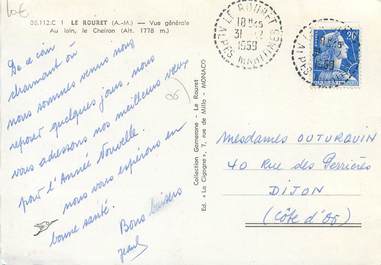 10€
35.112.C | LE ROURET (A.-M.) — Vue générale
Au loin, le Cheiron (Alt. 1778 m.)
De ce coin
charmant où
nous sommes venus nous
reposer quelques jours, nous
vous adressons nos meilleurs vœux
pour l'Année Nouvelle.
nous vous espérons en
bonne santé.
Bons baisers
06
Collection Gomerane - Le Rouret
Ed. "La Cigogne", 7, rue de Millo - MONACO
LE ROURET
18H45
31-12
1959
ALPES MARITIMES
18H45
1959
ALPES
20F
Mesdames OUTURQUIN
40 Rue des Perrières
DIJON
(Côte d'Or)